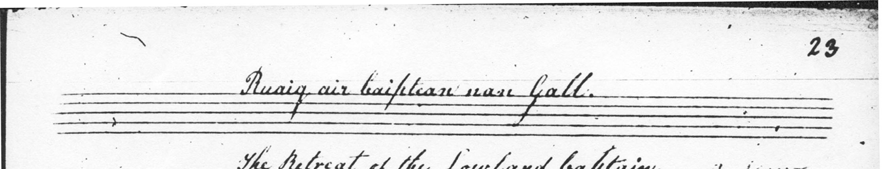 23
Ruaig air Caiptean nan Gall.
The Retreat of the Lowland Captain